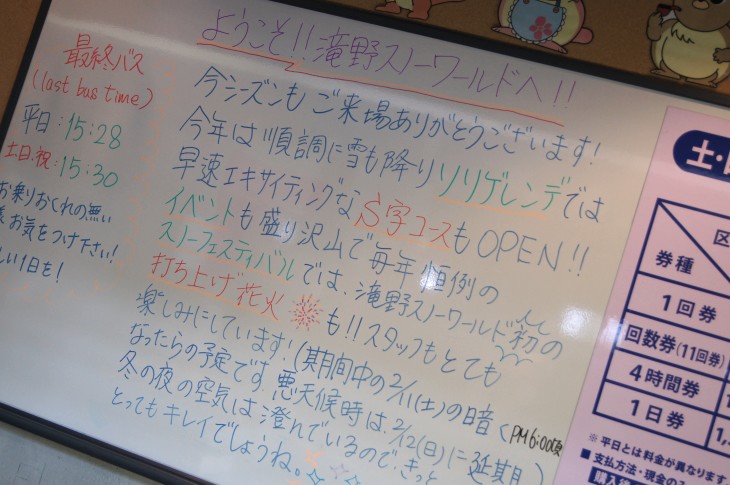 最終バス
(last bus time)
平日:15:28
土日.祝:15:30
お乗りおくれの無い
お気をつけ下さい!
い1日を!
ようこそ!!滝野スノーワールドへ!!
今シーズンもご来場ありがとうございます!
今年は順調に雪も降りソリゲレンデでは
早速エキサイティングなS字コースもOPEN!!
イベントも盛り沢山で毎年恒例の
スノーフェスティバルでは、滝野スノーワールド初の
打ち上げ花火も!!スタッフもとても
楽しみにしています!(期間中の2/11(土)の暗く
なったらの予定です。悪天候時は、2/12(日)に延期)
PM6:00頃
冬の夜の空気は澄んでいるので、きっと
とってもキレイでしょうね。
土・
区
券種
1回券
回数券(11回券)
4時間券
1日券
1,
※平日とは料金が異な
■支払方法・現金のみ
購入